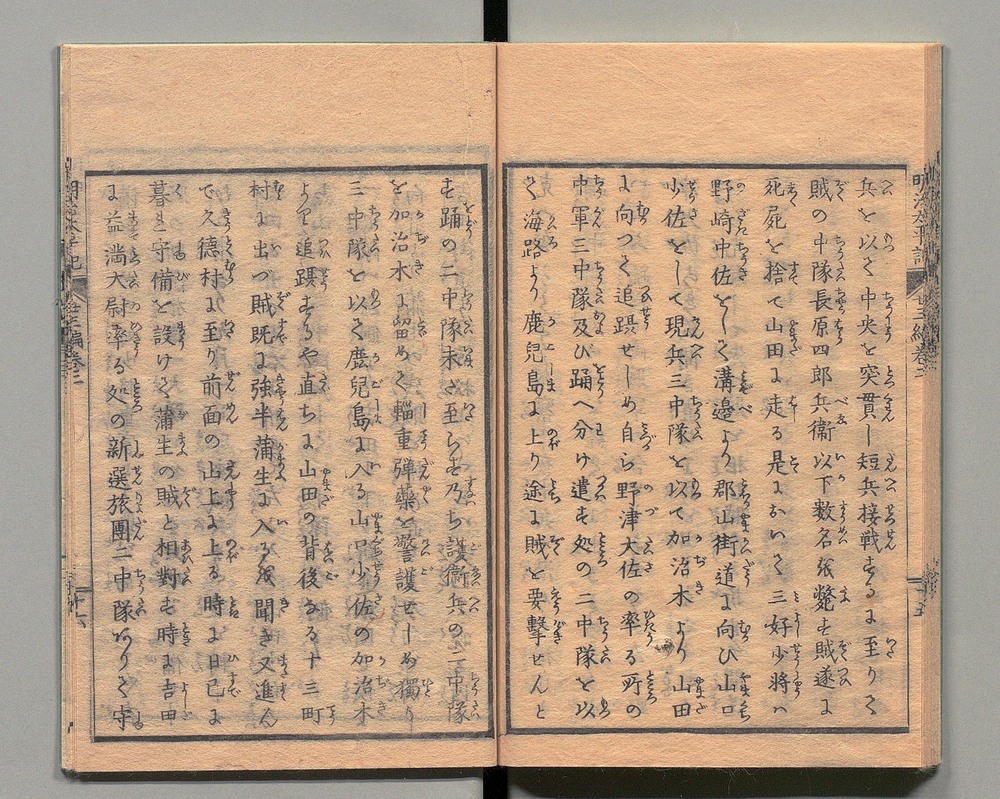 兵を以て中央を突貫し短兵接戦するに至りて
賊の中隊長原四郎兵衛以下数名を斃す賊遂に
死屍を捨て山田に走る是において三好少将ハ
野崎中佐をして溝邉より郡山街道に向ひ山口
少佐をして現兵三中隊を以て加治木より山田
に向つて追躡せしめ自ら野津大佐の率る所の
中軍三中隊及び踊へ分け遣す処の二中隊を以
て海路より鹿児島に上り途に賊を要撃せんと
す踊の二中隊未だ至らず乃ち護衛兵の二中隊
を加治木に留めて輜重弾薬を警護せしめ獨り
三中隊を以て鹿児島に入る山口少佐の加治木
より追躡するや直ちに山田の背後なる十三町
村に出づ賊既に強半蒲生に入るを聞き又進ん
で久德村に至り前面の山上に上る時に日已に
暮る守備を設けて蒲生の賊と相對す時に吉田
に益満大尉率る処の新選旅團二中隊ありて守